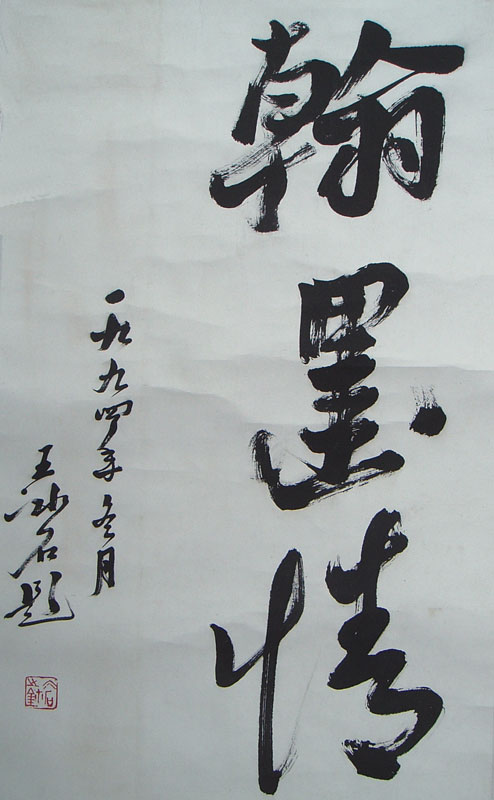 翰墨情
一九九四年冬月
王冰石题